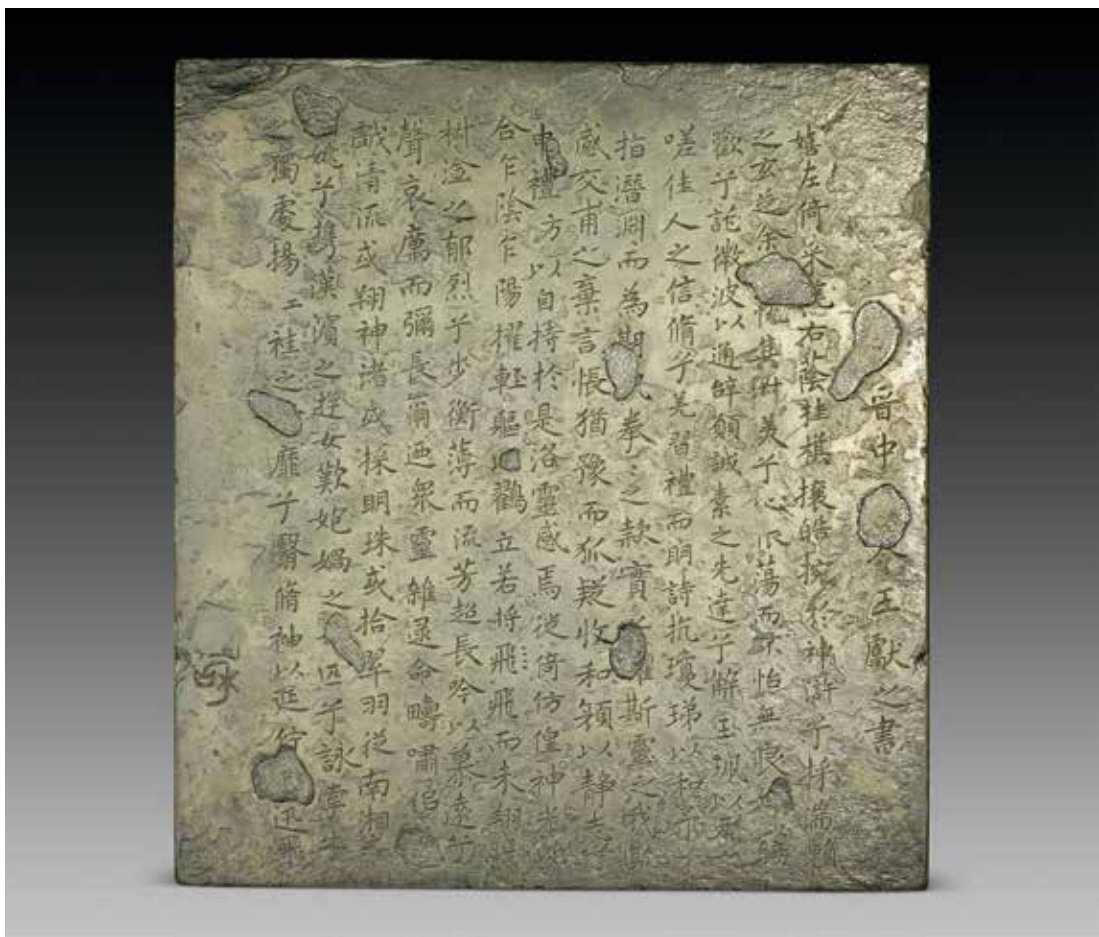 晉中令王獻之書
嬉左倚采旄右蔭桂棋攘皓捥於神滸兮採湍瀨
之玄芝余悅其淋美兮心振蕩而不怡無良
歡兮託微波以通辭願誠素之先達兮解玉珮以要
嗟佳人之信脩兮羌習禮而明詩抗瓊珶以和予
指潛淵而為期拳之款實懼斯靈之我
感交甫之棄言悵猶豫而狐疑收和顏以靜志
申禮方以自持於是洛靈感焉徙倚仿偟神光
合乍陰乍陽擢輕軀以鶴立若将飛飛而未翔
椒塗之郁烈兮步衡薄而流芳超長吟以慕遠兮
聲哀厲而彌長爾迺衆靈雜遝命疇嘯侶
戲清流或翔神渚或採明珠或拾翠羽從南湘之
姚兮攜漢濱之遊女歎匏媧之匹兮詠牽牛
獨處揚袿之靡兮翳脩袖以延佇迅飛